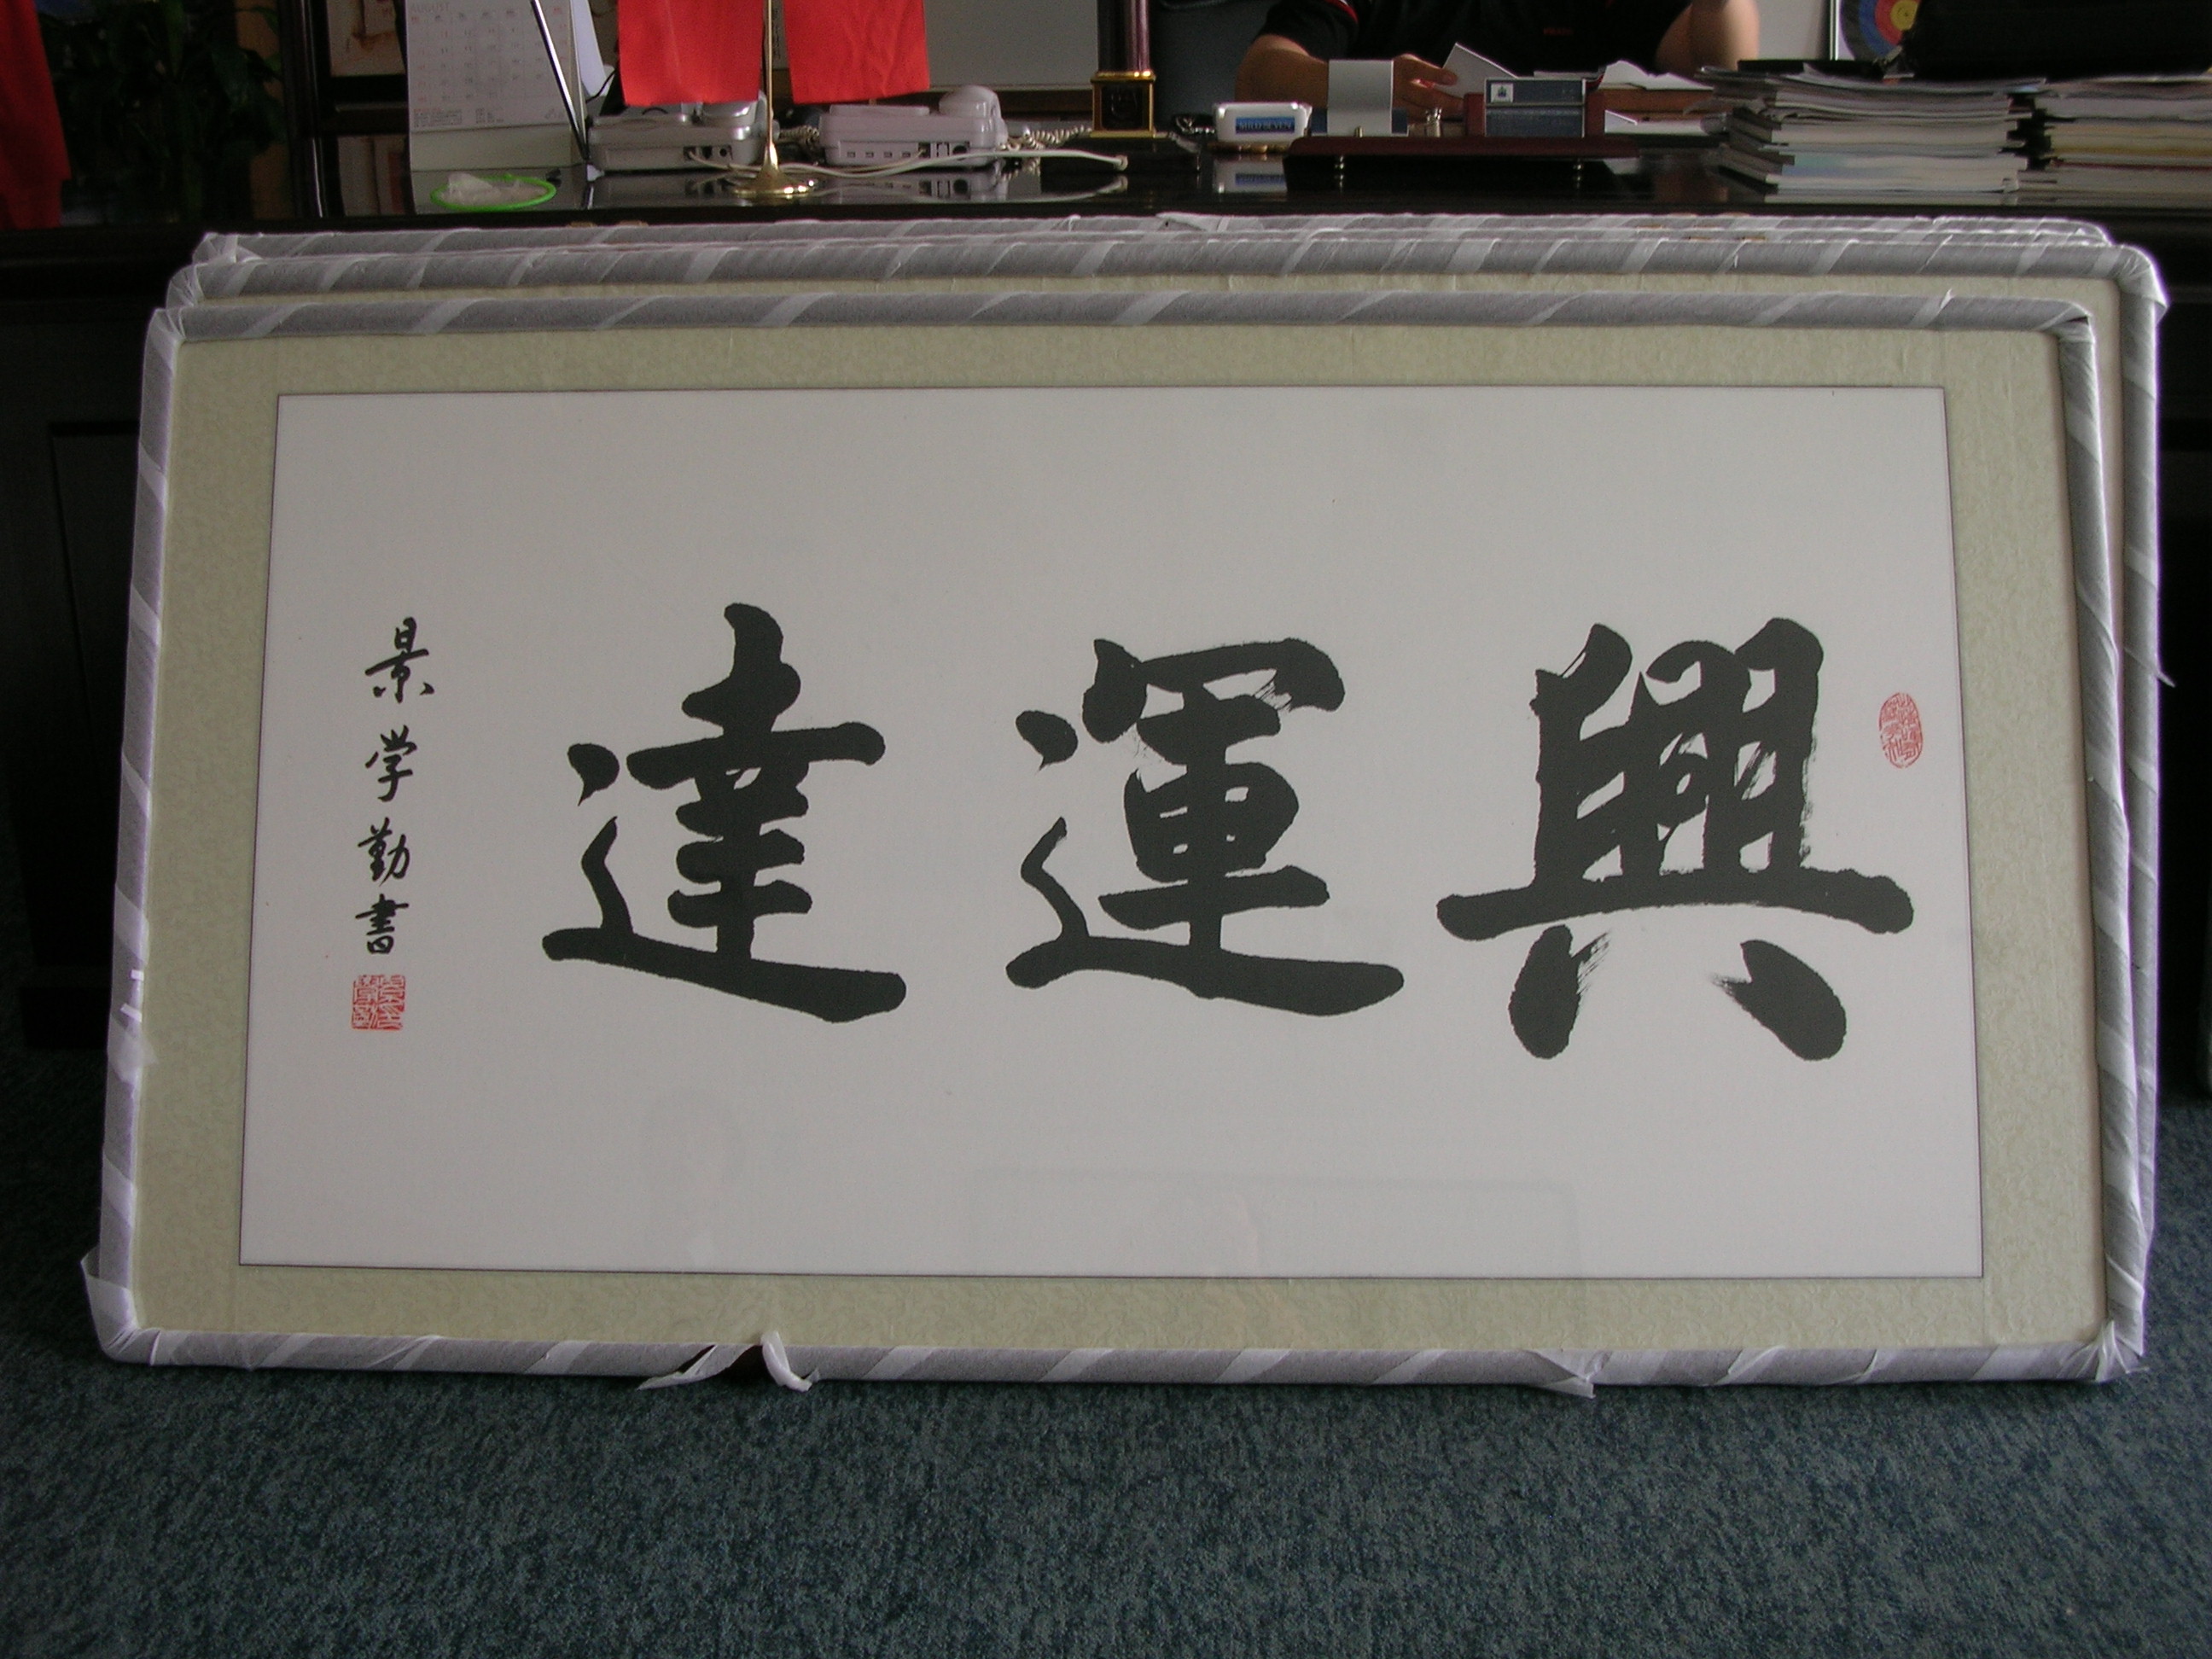 興運達
景学勤書